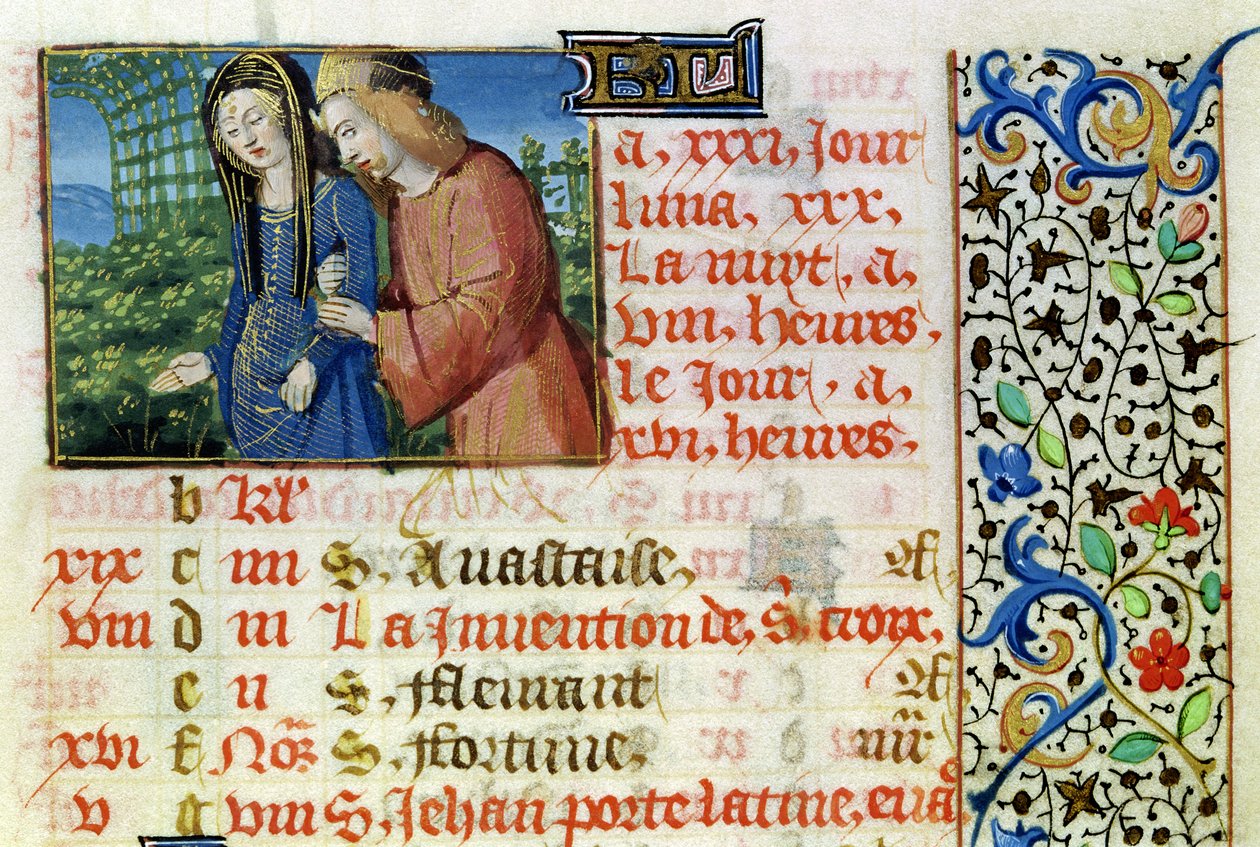 KL
a, xxxi, Jour
luna, xxx,
La nuyt, a,
viii, heures,
le Jour, a,
xvi, heures,
b kl
xix c iiii S, Anastaise,
viii d iii La Invention de, S, croix,
e ii S, fleurant
xvi f Noz S, ffortune,
v g viii S, Jehan porte latine,